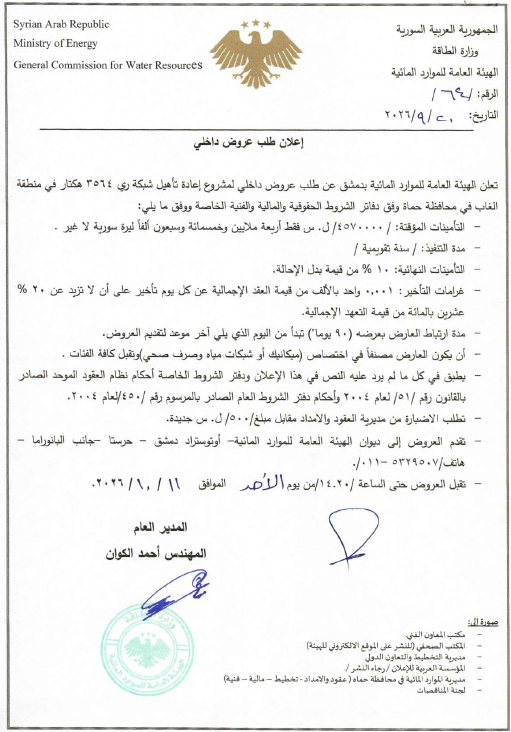 Syrian Arab Republic
Ministry of Energy
General Commission for Water Resources
الجمهورية العربية السورية
وزارة الطاقة
الهيئة العامة للموارد المائية
الرقم: /٦٤/
التاريخ: ٢٠/٩/٢٠٢٦
إعلان طلب عروض داخلي
تعلن الهيئة العامة للموارد المائية بدمشق عن طلب عروض داخلي لمشروع إعادة تأهيل شبكة ري ٣٥٦٤ هكتار في منطقة
الغاب في محافظة حماة وفق دفاتر الشروط الحقوقية والمالية والفنية الخاصة ووفق ما يلي:
- التأمينات المؤقتة: /٤٥٧٠٠٠٠/ ل. س فقط أربعة ملايين وخمسمائة وسبعون ألفاً ليرة سورية لا غير .
- مدة التنفيذ: / سنة تقويمية /
- التأمينات النهائية: ١٠ % من قيمة بدل الإحالة.
- غرامات التأخير: ٠,٠٠١ واحد بالألف من قيمة العقد الإجمالية عن كل يوم تأخير على أن لا تزيد عن ٢٠ %
عشرين بالمائة من قيمة التعهد الإجمالية.
- مدة ارتباط العارض بعرضه (٩٠ يوما") تبدأ من اليوم الذي يلي آخر موعد لتقديم العروض.
- أن يكون العارض مصنفاً في اختصاص (ميكانيك أو شبكات مياه وصرف صحي)وتقبل كافة الفئات .
- يطبق في كل ما لم يرد عليه النص في هذا الإعلان ودفتر الشروط الخاصة أحكام نظام العقود الموحد الصادر
بالقانون رقم /٥١/ لعام ٢٠٠٤ وأحكام دفتر الشروط العام الصادر بالمرسوم رقم /٤٥٠/لعام ٢٠٠٤.
- تطلب الاضبارة من مديرية العقود والامداد مقابل مبلغ/٥٠٠/ ل.س جديدة.
- تقدم العروض إلى ديوان الهيئة العامة للموارد المائية– أوتوستراد دمشق – حرستا –جانب البانوراما –
هاتف/٥٣٢٩٥٠٧ –٠١١/.
- تقبل العروض حتى الساعة /١٤.٢٠/من يوم الأحد الموافق ١١ / ١٠ /٢٠٢٦.
المدير العام
المهندس أحمد الكوان
صورة إلى:
- مكتب المعاون الفني
- المكتب الصحفي (للنشر على الموقع الالكتروني للهيئة)
- مديرية التخطيط والتعاون الدولي
- المؤسسة العربية للإعلان / رجاء النشر /.
- مديرية الموارد المائية في محافظة حماه ( عقود والامداد - تخطيط – مالية – فنية)
- لجنة المناقصات